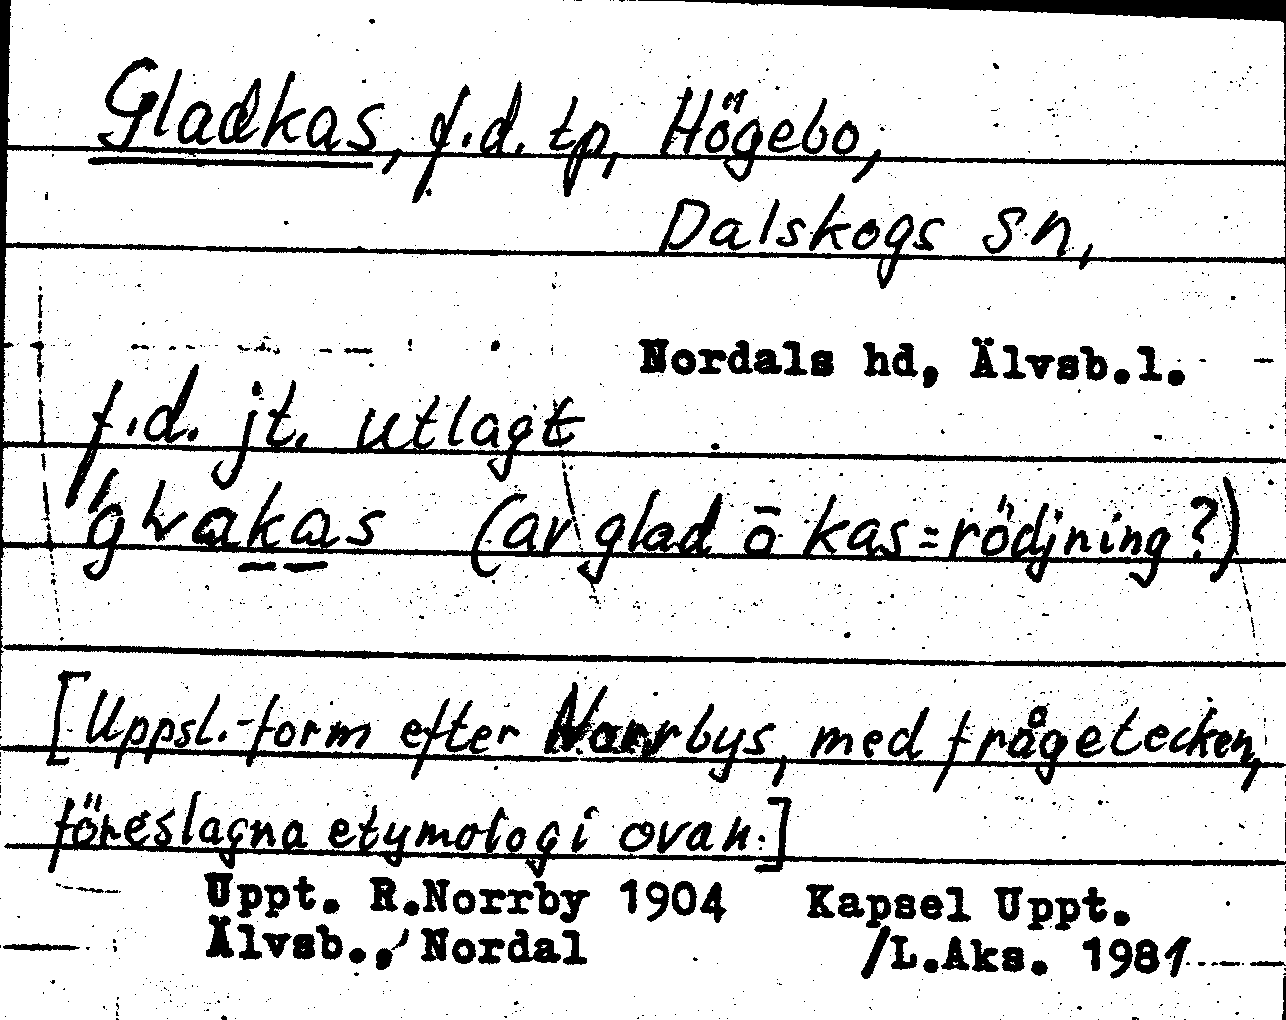 Gladkas, f.d. tp, Högebo,
Dalskogs sn,
Nordals hd, Älvsb.l.
f.d. jt. utlagt
(av glad o kas=rödjning?)
[Uppsl.-form efter Norrbys, med frågetecken,
föreslagna etymologi ovan.]
Uppt. R.Norrby 1904 Kapsel Uppt.
Älvsb., Nordal /L.Aks. 1981